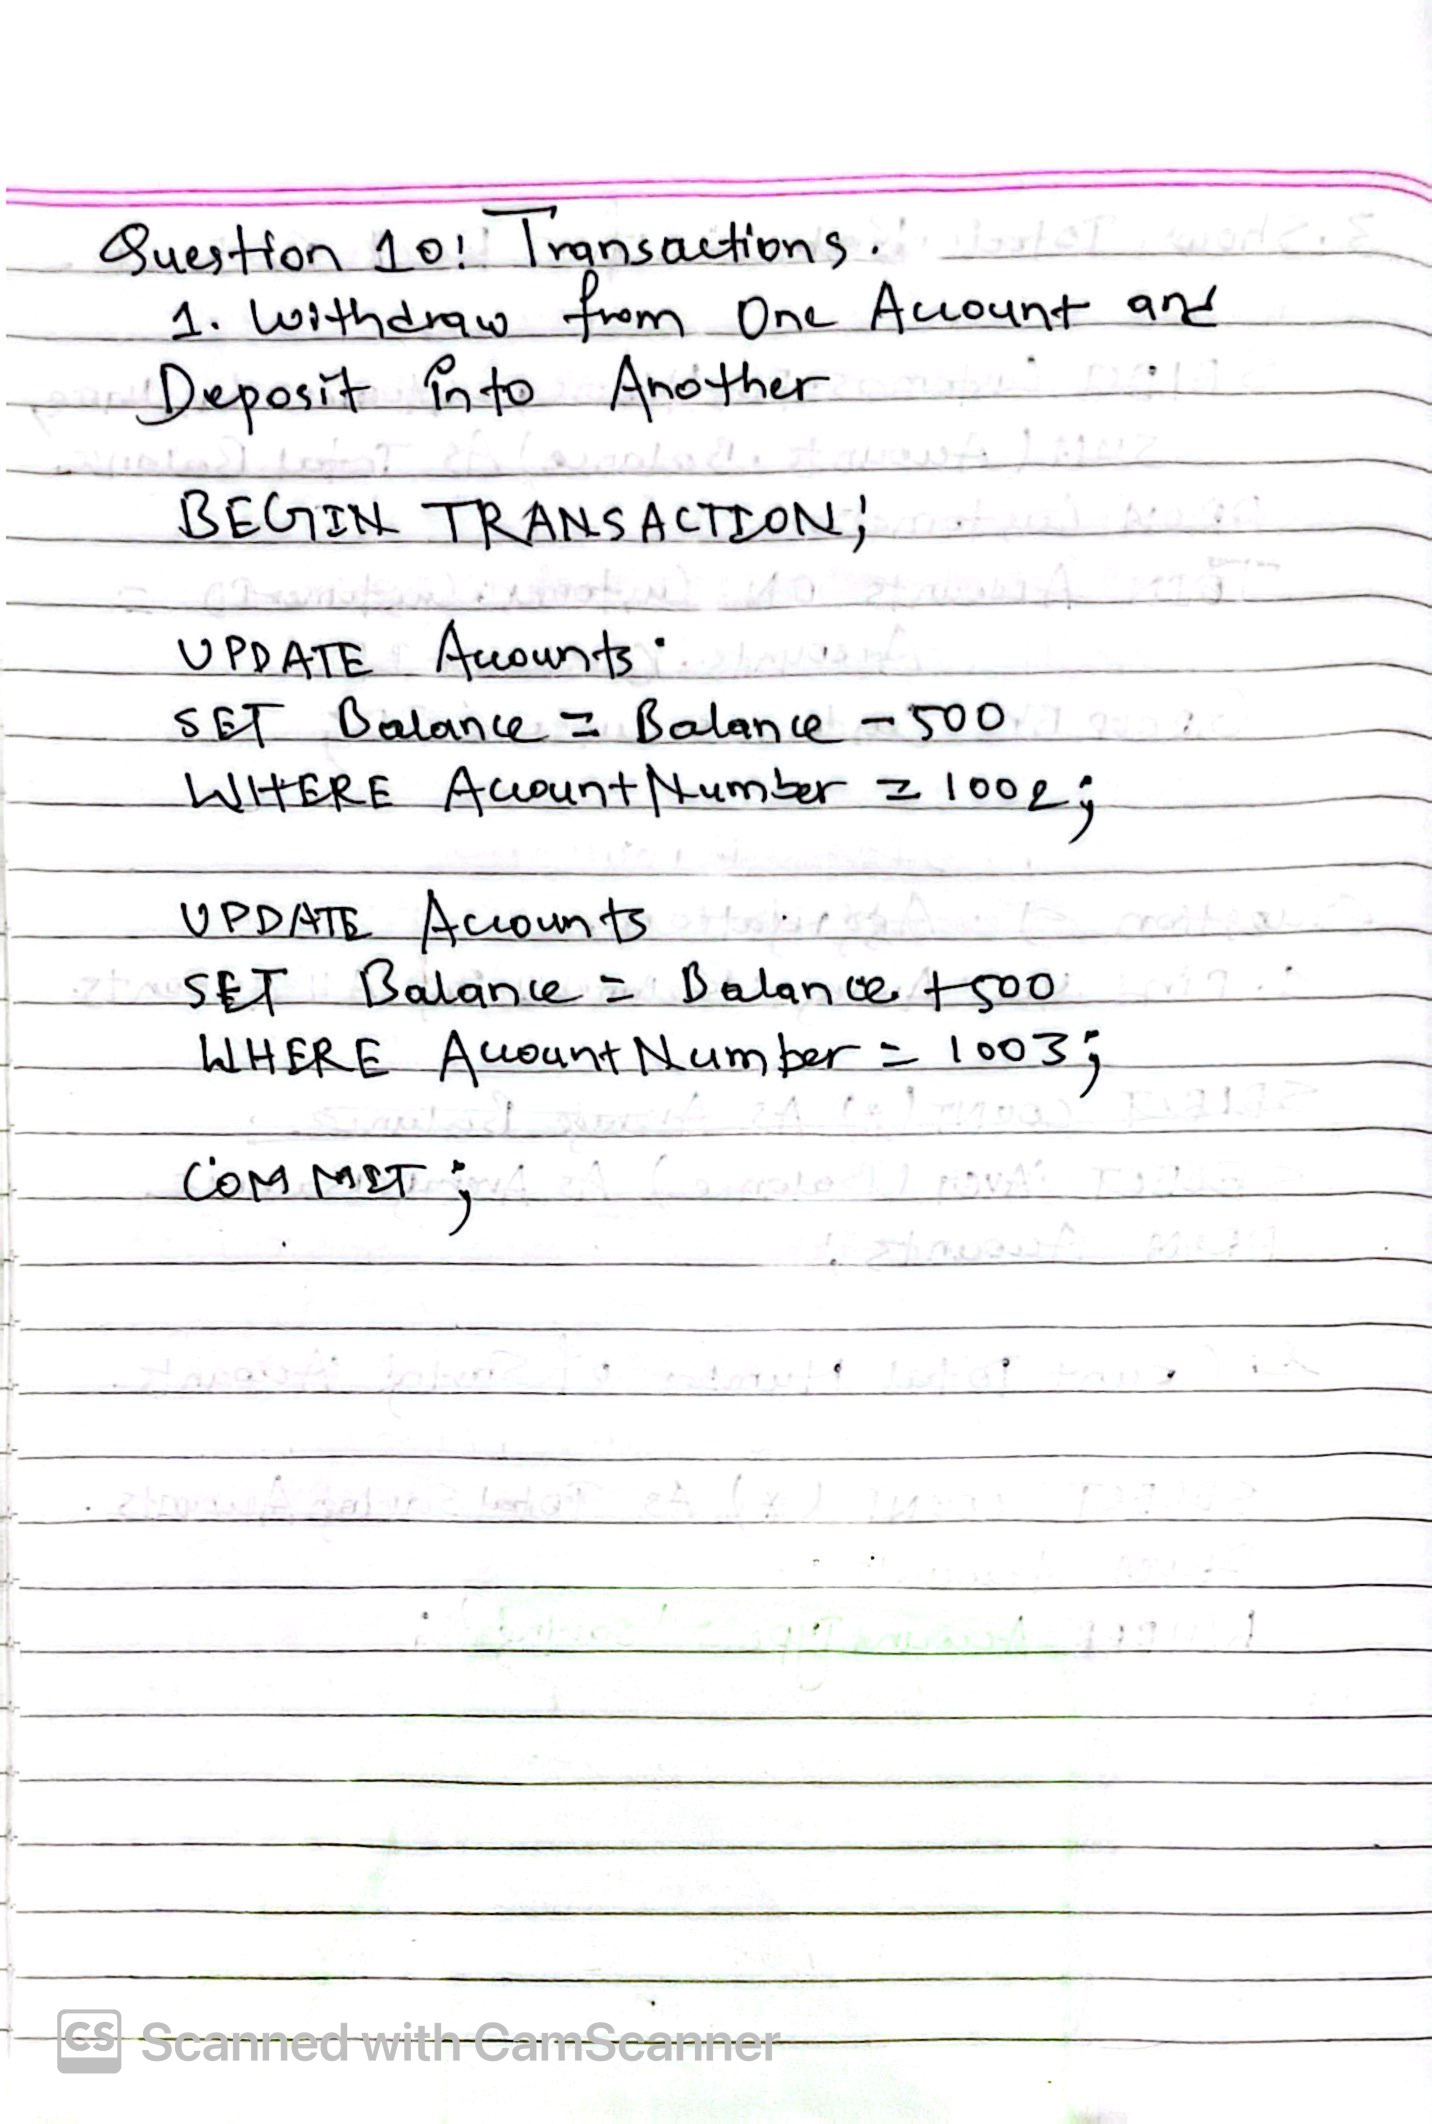 Question 10: Transactions.
1. Withdraw from One Account and
Deposit into Another
BEGIN TRANSACTION;
UPDATE Accounts
SET Balance = Balance - 500
WHERE AccountNumber = 1002;
UPDATE Accounts
SET Balance = Balance + 500
WHERE AccountNumber = 1003;
COMMIT;
CS Scanned with CamScanner